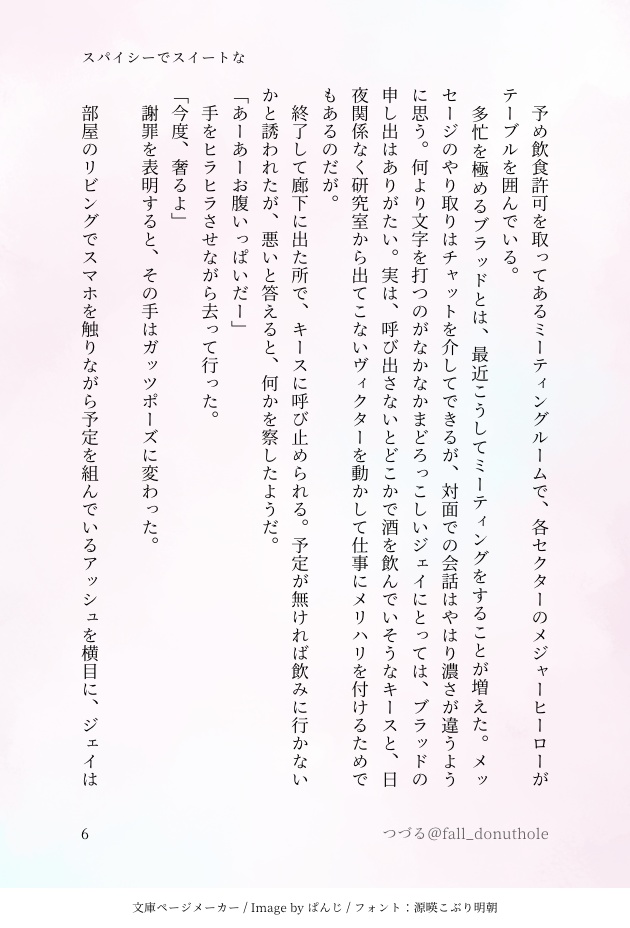 スパイシーでスイートな
　予め飲食許可を取ってあるミーティングルームで、各セクターのメジャーヒーローが
テーブルを囲んでいる。
　多忙を極めるブラッドとは、最近こうしてミーティングをすることが増えた。メッ
セージのやり取りはチャットを介してできるが、対面での会話はやはり濃さが違うよう
に思う。何より文字を打つのがなかなかまどろっこしいジェイにとっては、ブラッドの
申し出はありがたい。実は、呼び出さないとどこかで酒を飲んでいそうなキースと、日
夜関係なく研究室から出てこないヴィクターを動かして仕事にメリハリを付けるためで
もあるのだが。
　終了して廊下に出た所で、キースに呼び止められる。予定が無ければ飲みに行かない
かと誘われたが、悪いと答えると、何かを察したようだ。
「あーあーお腹いっぱいだー」
　手をヒラヒラさせながら去って行った。
「今度、奢るよ」
　謝罪を表明すると、その手はガッツポーズに変わった。
　部屋のリビングでスマホを触りながら予定を組んでいるアッシュを横目に、ジェイは
6
つづる@fall_donuthole
文庫ページメーカー / Image by ぱんじ / フォント：源暎こぶり明朝